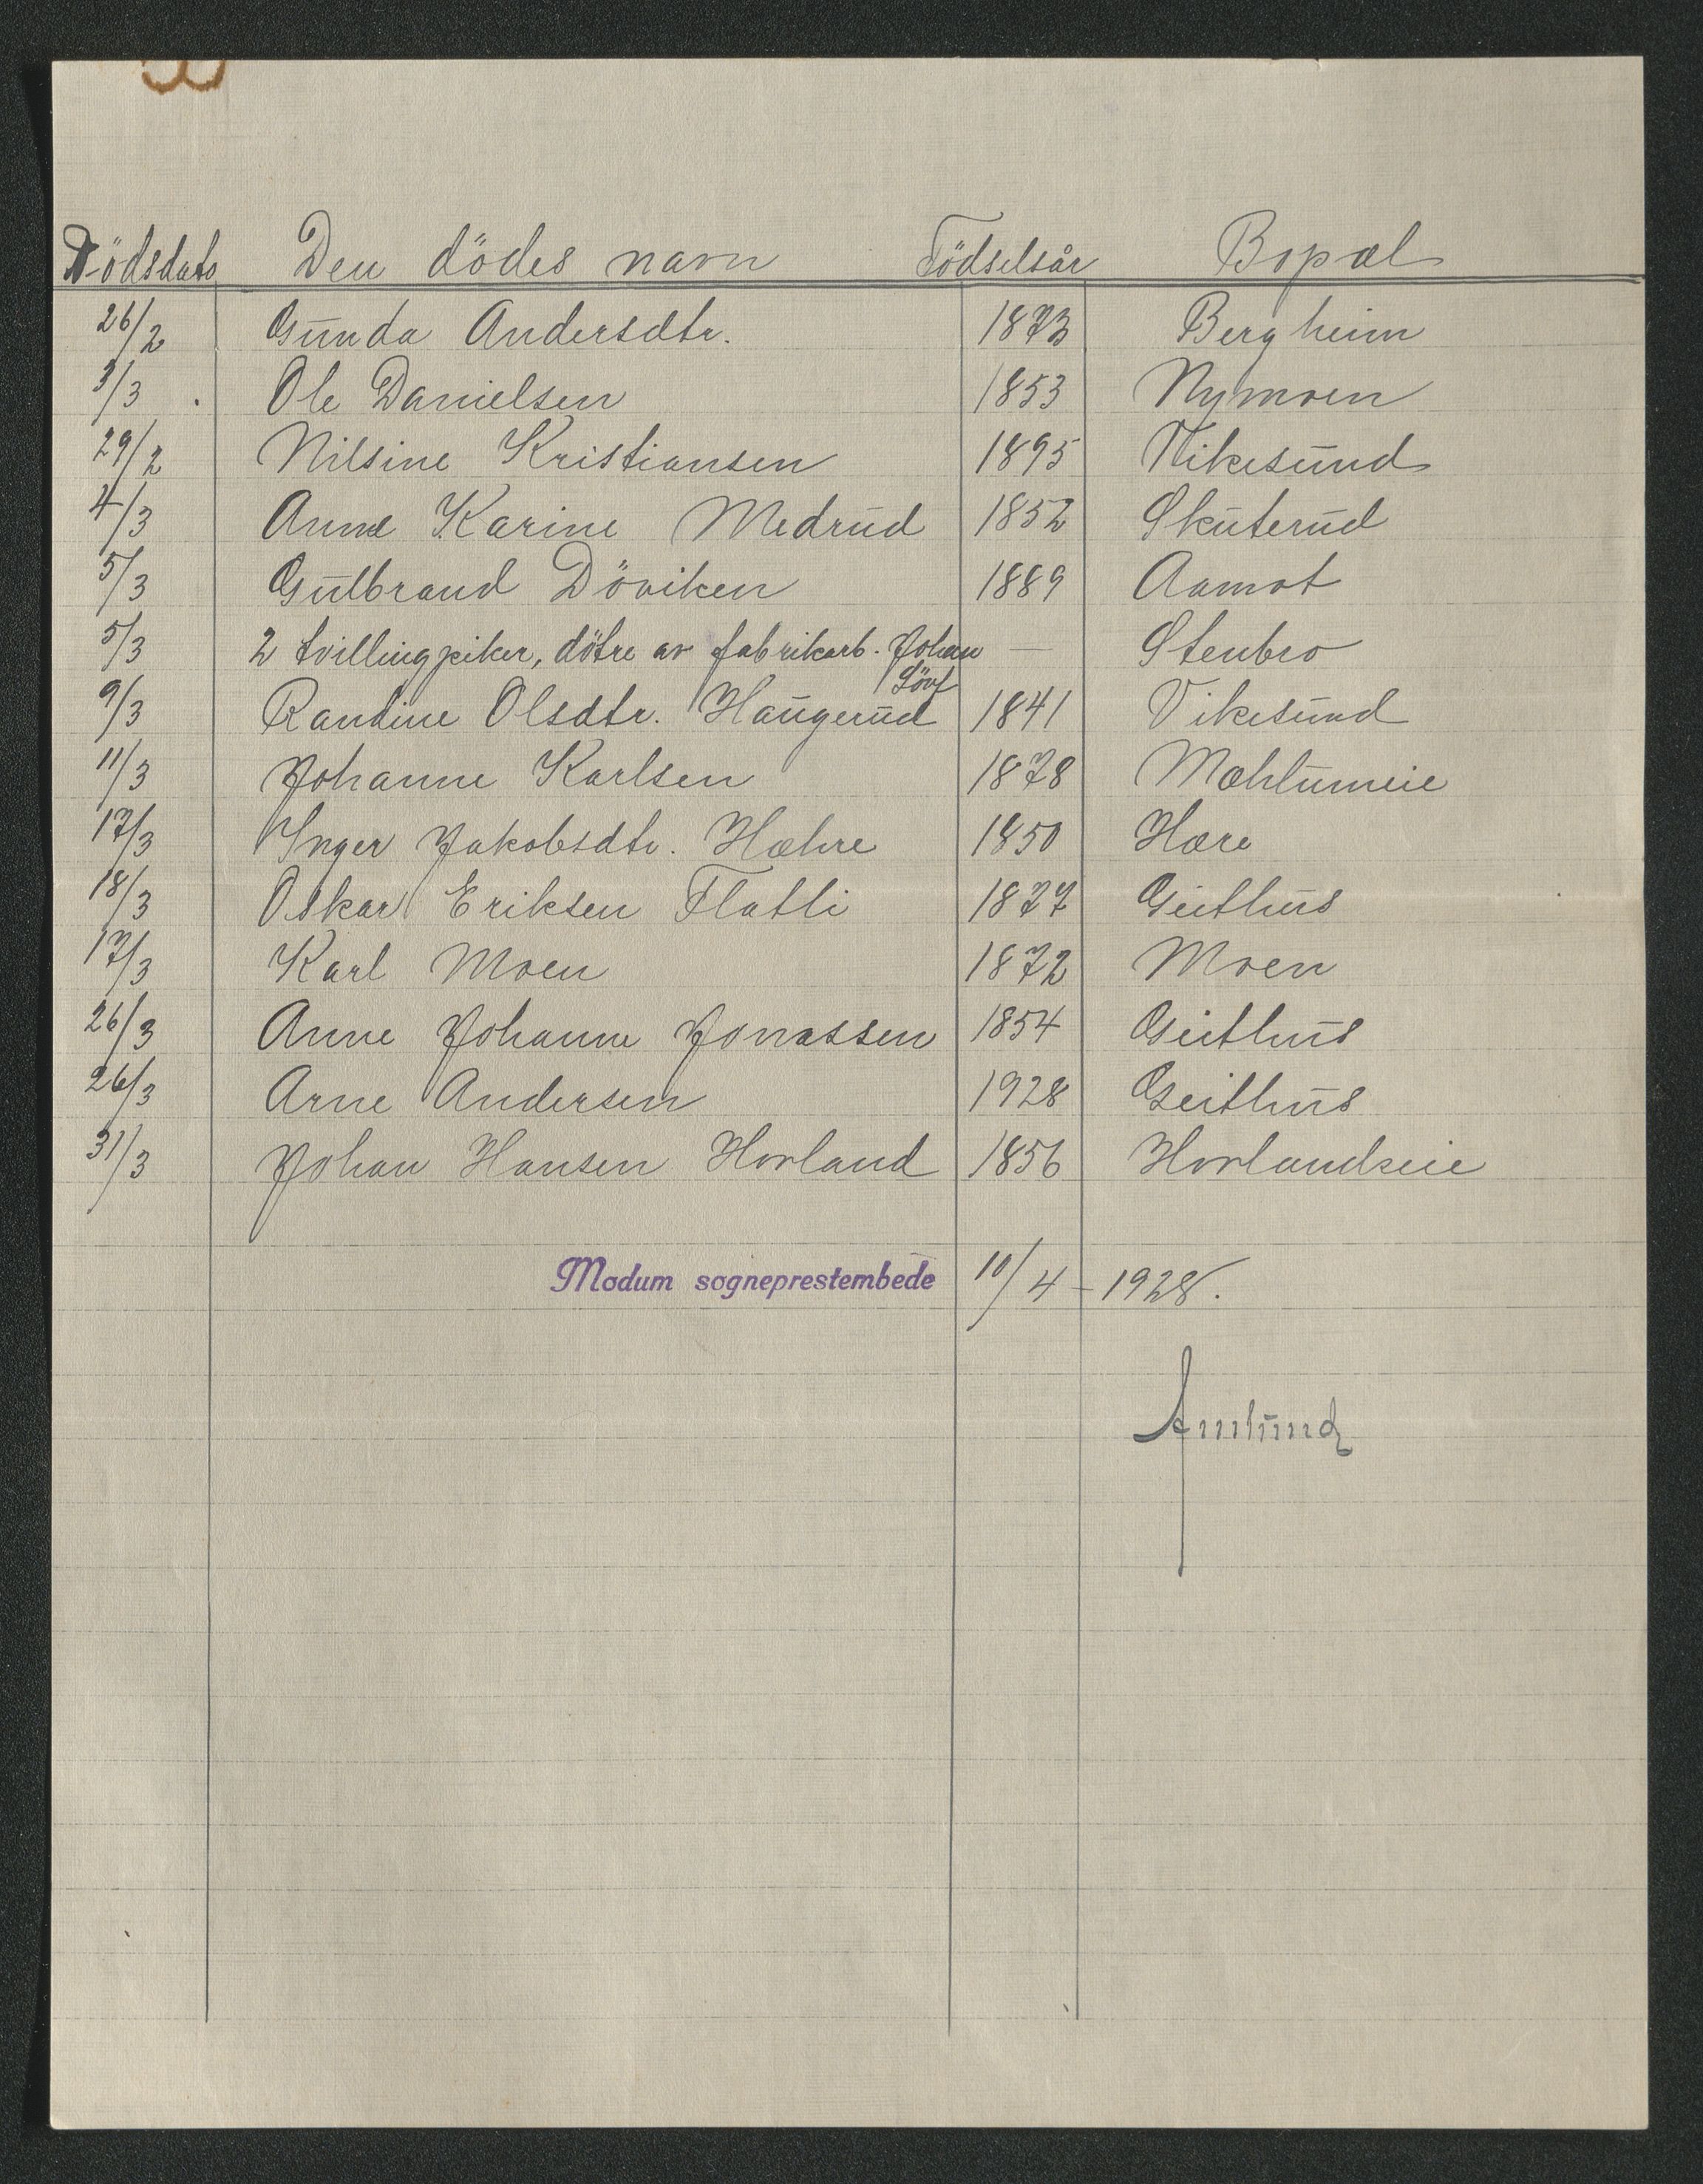 Dödsdato Den dödes navn Födselsår Bopæl
26/2 Gunda Andersdtr. 1873 Bergheim
3/3 Ole Danielsen 1853 Nymoen
29/2 Nilsine Kristiansen 1895 Vikesund
4/3 Anne Karine Medrud 1852 Skuterud
5/3 Gulbrand Döviken 1889 Aamot
5/3 2 tvillingpiker, dötre av fabrikarb. Johan — Stenbro
9/3 Randine Olsdtr. Haugerud 1841 Vikesund
11/3 Johanne Karlsen 1878 Mæhlumeie
17/3 Inger Jakobsdtr. Hæhre 1850 Hære
18/3 Oskar Eriksen Flatli 1877 Geithus
17/3 Karl Moen 1872 Moen
26/3 Anne Johanne Jonassen 1854 Geithus
26/3 Arne Andersen 1928 Geithus
31/3 Johan Hansen Hovland 1856 Hovlandseie
Modum sogneprestembede 10/4 - 1928.
Amlund